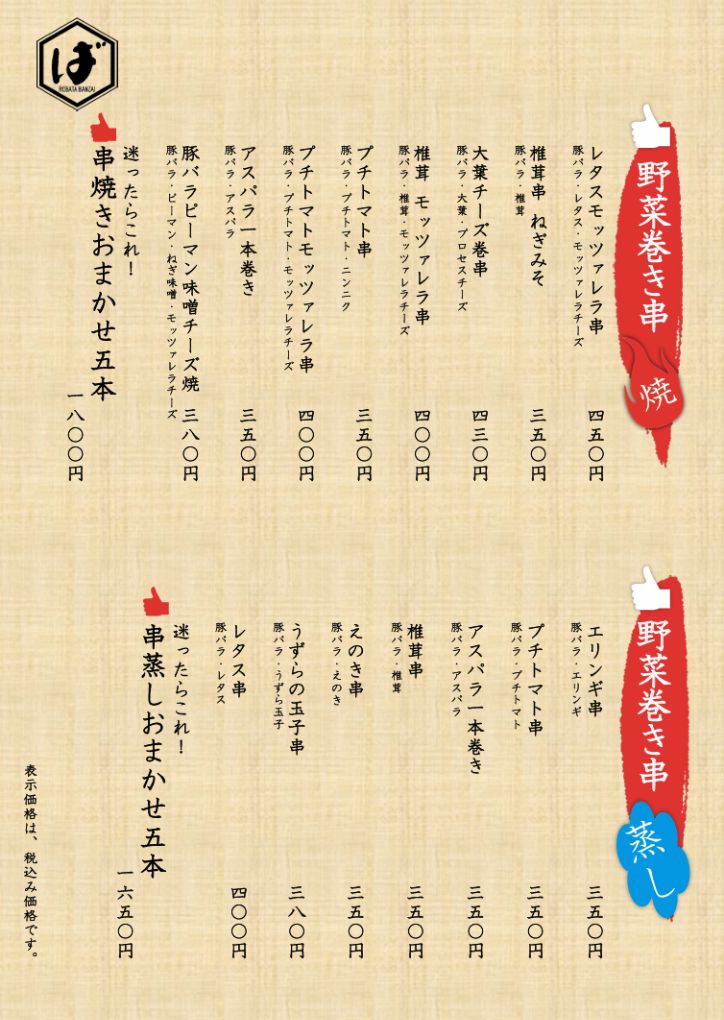 ば
ROBATA BANZAI
野菜巻き串
焼
レタスモッツァレラ串
豚バラ・レタス・モッツァレラチーズ
四五〇円
椎茸串 ねぎみそ
豚バラ・椎茸
三五〇円
大葉チーズ巻串
豚バラ・大葉・プロセスチーズ
四三〇円
椎茸 モッツァレラ串
豚バラ・椎茸・モッツァレラチーズ
四〇〇円
プチトマト串
豚バラ・プチトマト・ニンニク
三五〇円
プチトマトモッツァレラ串
豚バラ・プチトマト・モッツァレラチーズ
四〇〇円
アスパラ一本巻き
豚バラ・アスパラ
三五〇円
豚バラピーマン味噌チーズ焼
豚バラ・ピーマン・ねぎ味噌・モッツァレラチーズ
三八〇円
迷ったらこれ!
串焼きおまかせ五本
一八〇〇円
野菜巻き串
蒸し
エリンギ串
豚バラ・エリンギ
三五〇円
プチトマト串
豚バラ・プチトマト
三五〇円
アスパラ一本巻き
豚バラ・アスパラ
三五〇円
椎茸串
豚バラ・椎茸
三五〇円
えのき串
豚バラ・えのき
三五〇円
うずらの玉子串
豚バラ・うずら玉子
三八〇円
レタス串
豚バラ・レタス
四〇〇円
迷ったらこれ!
串蒸しおまかせ五本
一六五〇円
表示価格は、税込み価格です。